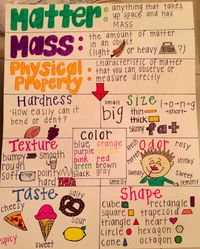 Matter: anything that takes
up space and has
MASS
MASS: the amount of matter
in an object
(light or heavy ?)
Physical Property: characteristic of matter
that you can observe or
measure directly
Hardness
"How easily can it
bend or dent?"
small
big
Size
l-o-n-g
-short-
thin
thick
skinny fat
Texture
bumpy smooth
rough
soft pointy
hard
Color
blue orange
purple yellow
pink red
green brown
black
gray
odor
fresh
rosy
stinky
sweaty
sweet
smelly
lemony
Taste
cheesy
salty
sour
spicy
sweet
Shape
cube rectangle
square trapezoid
triangle heart
circle hexagon
cone octagon